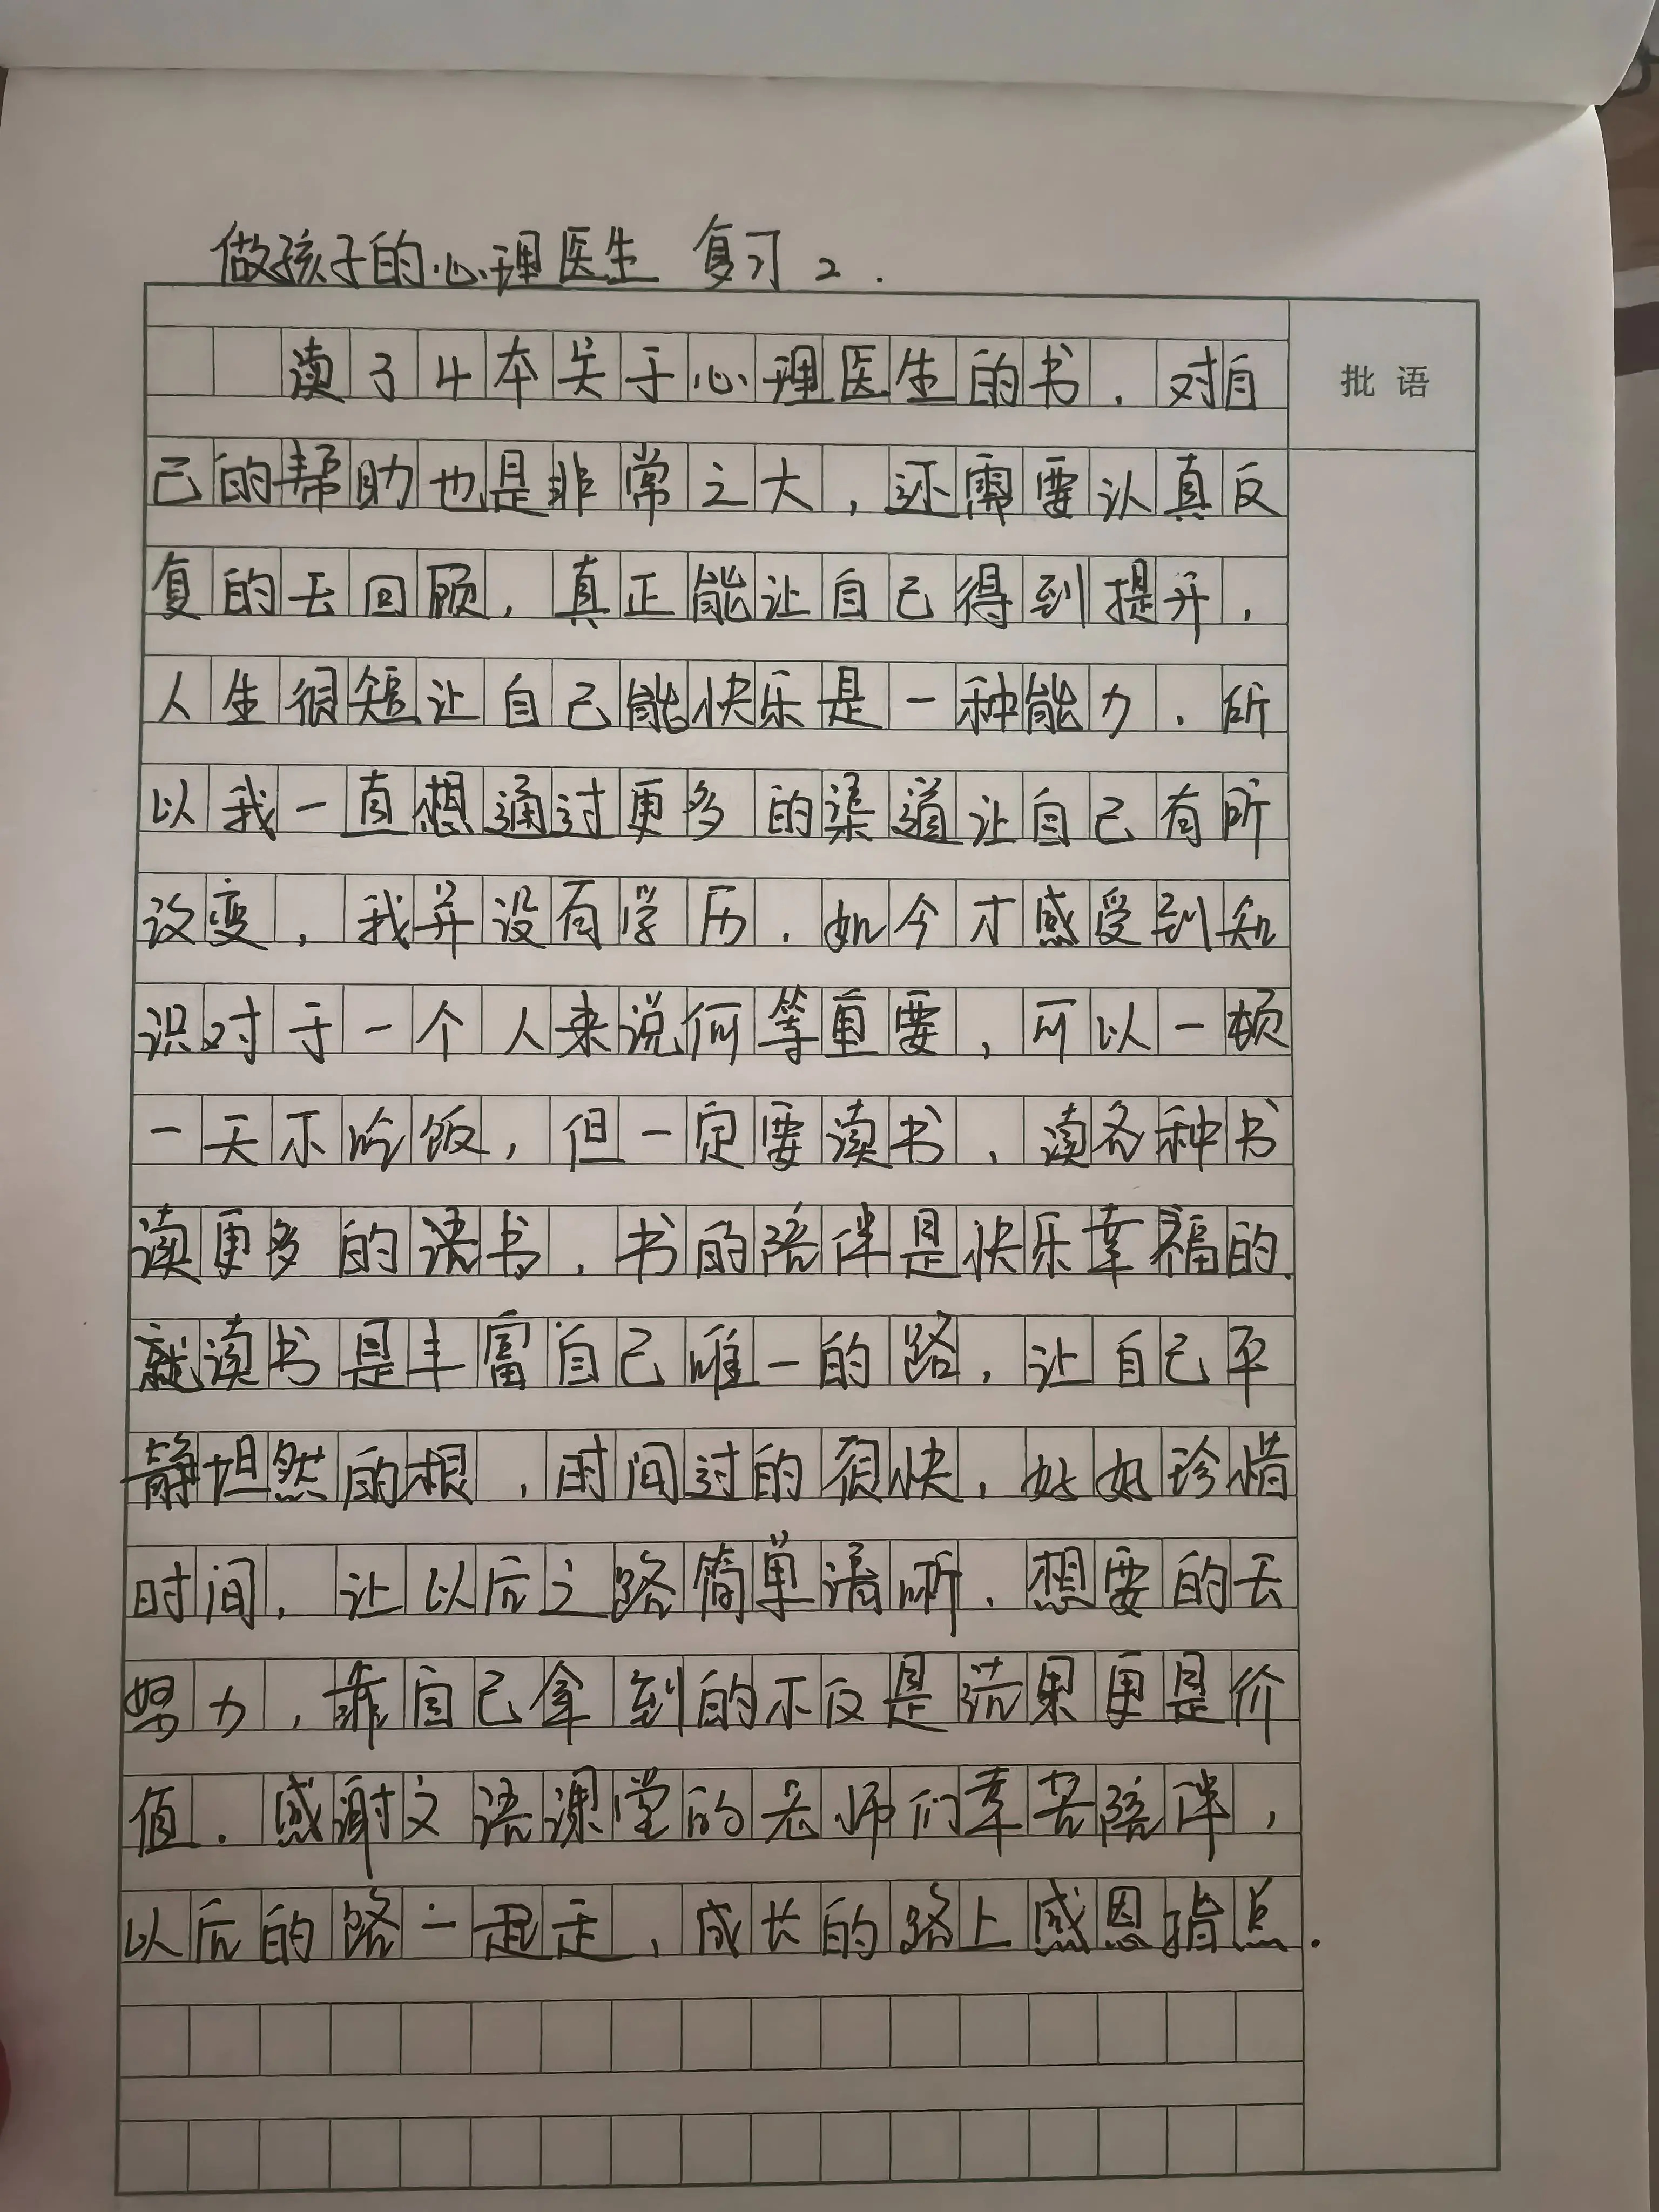 做孩子的心理医生 复习2.
读了4本关于心理医生的书，对自
批语
己的帮助也是非常之大，还需要认真反
复的去回顾，真正能让自己得到提升，
人生很短让自己能快乐是一种能力，所
以我一直想通过更多的渠道让自己有所
改变，我并没有学历，如今才感受到知
识对于一个人来说何等重要，可以一顿
一天不吃饭，但一定要读书，读各种书
读更多的语书，书的陪伴是快乐幸福的，
就读书是丰富自己唯一的路，让自己平
静坦然的根，时间过的很快，好好珍惜
时间，让以后之路简单清晰，想要的去
努力，靠自己拿到的不仅是结果更是价
值。感谢文语课堂的老师们辛苦陪伴，
以后的路一起走，成长的路上感恩指点.